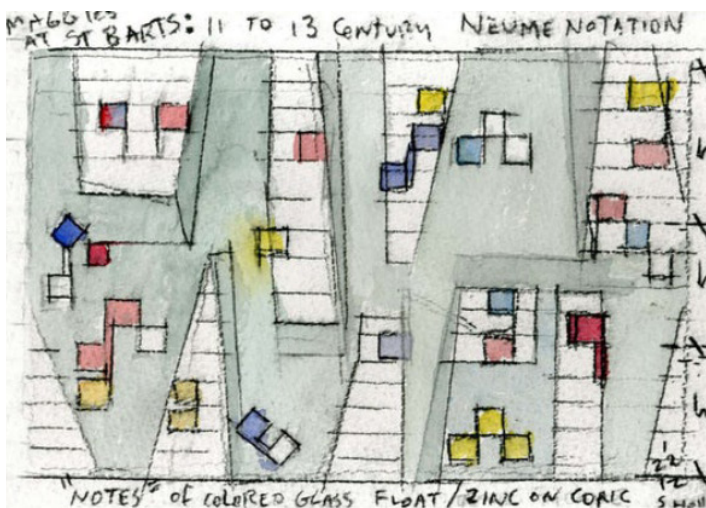 MAGGIES
AT ST BARTS: 11 TO 13 CENTURY NEUME NOTATION
"NOTES" OF COLORED GLASS FLOAT / ZINC ON CONIC